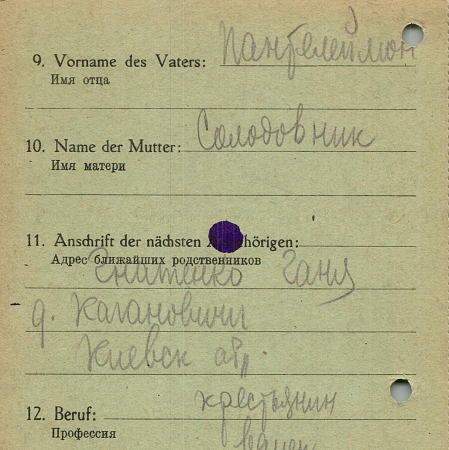 9. Vorname des Vaters: Пантелеймон
Имя отца
10. Name der Mutter: Солодовник
Имя матери
11. Anschrift der nächsten Angehörigen:
Адрес ближайших родственников
Гнатенко Ганя
д. Кагановичи
Киевск
12. Beruf: крестьянин
Профессия